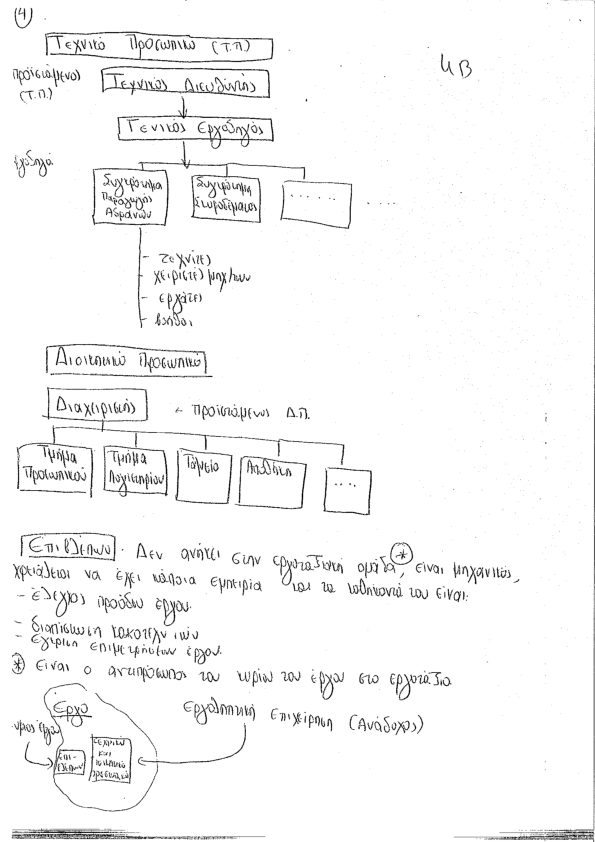 (4)
Τεχνικό Προσωπικό (Τ.Π.)
4B
Προϊστάμενος
(Τ.Π.)
Τεχνικός Διευθυντής
Γενικός Εργοδηγός
Εργοδηγοί
Συγκρότημα
Παραγωγής
Αδρανών
Συγκρότημα
Σκυροδέματος
......
....
- τεχνίτες
- χειριστές μηχ/των
- εργάτες
- βοηθοί
Διοικητικό Προσωπικό
Διαχειριστής
← Προϊστάμενος Δ.Π.
Τμήμα
Προσωπικού
Τμήμα
Λογιστηρίου
Ταμείο
Αποθήκη
....
Επιβλέπων. Δεν ανήκει στην εργοταξιακή ομάδα*, είναι μηχανικός,
χρειάζεται να έχει κάποια εμπειρία και τα καθήκοντά του είναι:
- έλεγχος προόδου έργου.
- διαπίστωση κακοτεχνιών
- έγκριση επιμετρήσεων έργου.
* Είναι ο αντιπρόσωπος του κυρίου του έργου στο εργοτάξιο
Έργο
Εργοληπτική Επιχείρηση (Ανάδοχος)
κύριος έργου
Επι-
βλέπων
τεχνικό
και
διοικητικό
προσωπικό